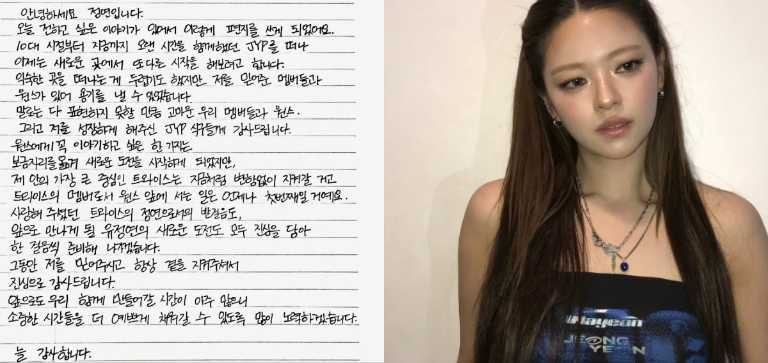 안녕하세요 정연입니다.
오늘 전하고 싶은 이야기가 있어서 이렇게 편지를 쓰게 되었어요.
10대 시절부터 지금까지 오랜 시간을 함께했던 JYP를 떠나
이제는 새로운 곳에서 또다른 시작을 해보려고 합니다.
익숙한 곳을 떠나는 게 두렵기도 했지만 저를 믿어준 멤버들과
원스가 있어 용기를 낼 수 있었습니다.
말로는 다 표현하지 못할 만큼 고마운 우리 멤버들과 원스.
그리고 저를 성장하게 해주신 JYP 식구들께 감사드립니다.
원스에게 꼭 이야기하고 싶은 한 가지는
보금자리를 옮겨 새로운 도전을 시작하게 되었지만,
제 안의 가장 큰 중심인 트와이스는 지금처럼 변함없이 지켜갈 거고
트와이스의 멤버로서 원스 앞에 서는 일은 언제나 첫번째일 거예요.
사랑해 주셨던 트와이스의 정연으로서의 발걸음도,
앞으로 만나게 될 유정연의 새로운 도전도 모두 진심을 담아
한 걸음씩 준비해 나가겠습니다.
그동안 저를 믿어주시고 항상 곁을 지켜주셔서
진심으로 감사드립니다.
앞으로도 우리 함께 만들어갈 시간이 아주 많으니
소중한 시간들을 더 예쁘게 채워갈 수 있도록 많이 노력하겠습니다.
늘 감사합니다.
Nayeon
JEONG
YEON